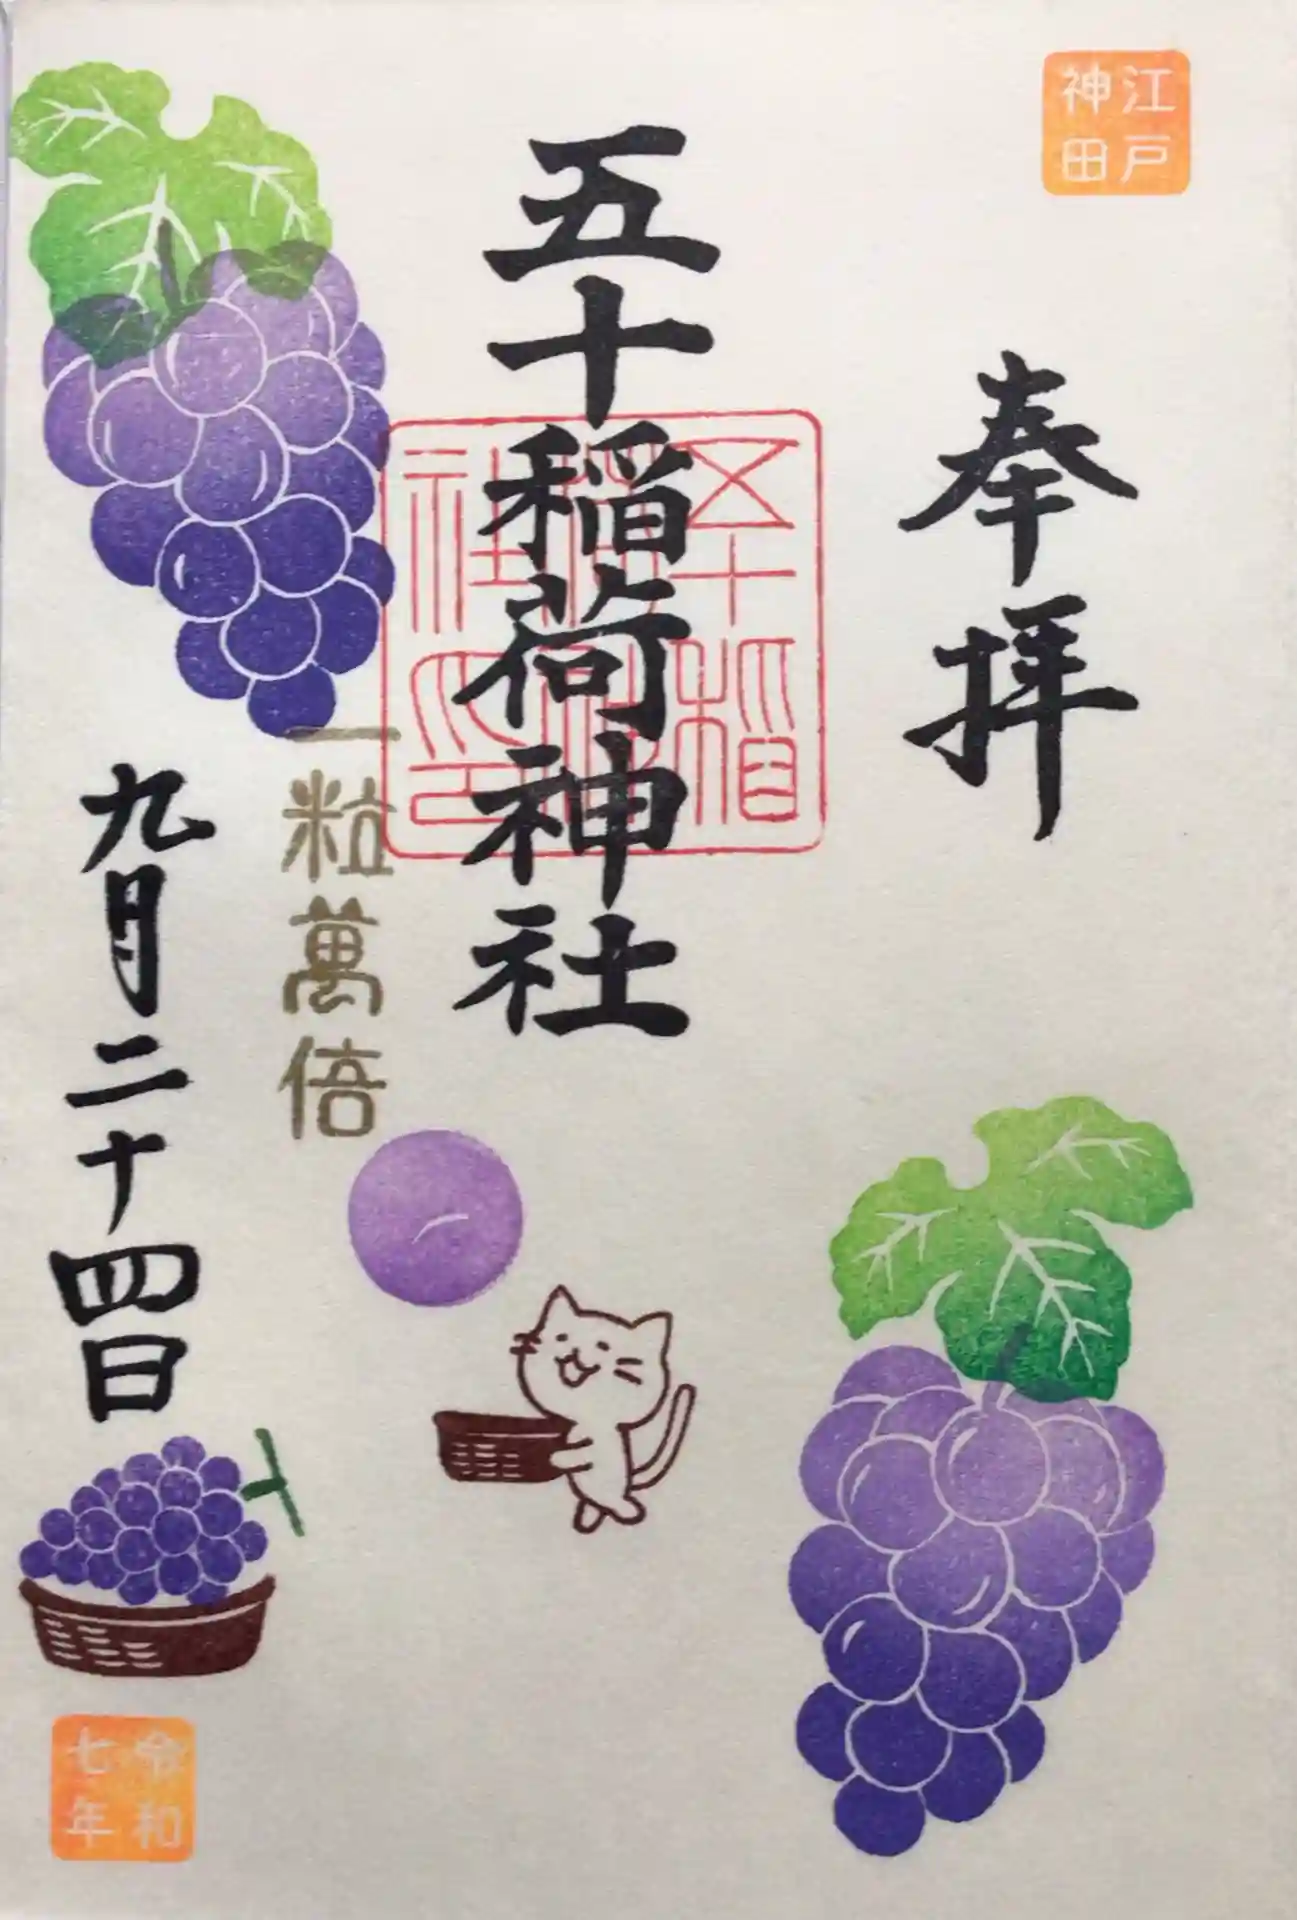 江戸
神田
奉拝
五十稲荷神社
五十稲
社印
一粒萬倍
九月二十四日
令和
七年